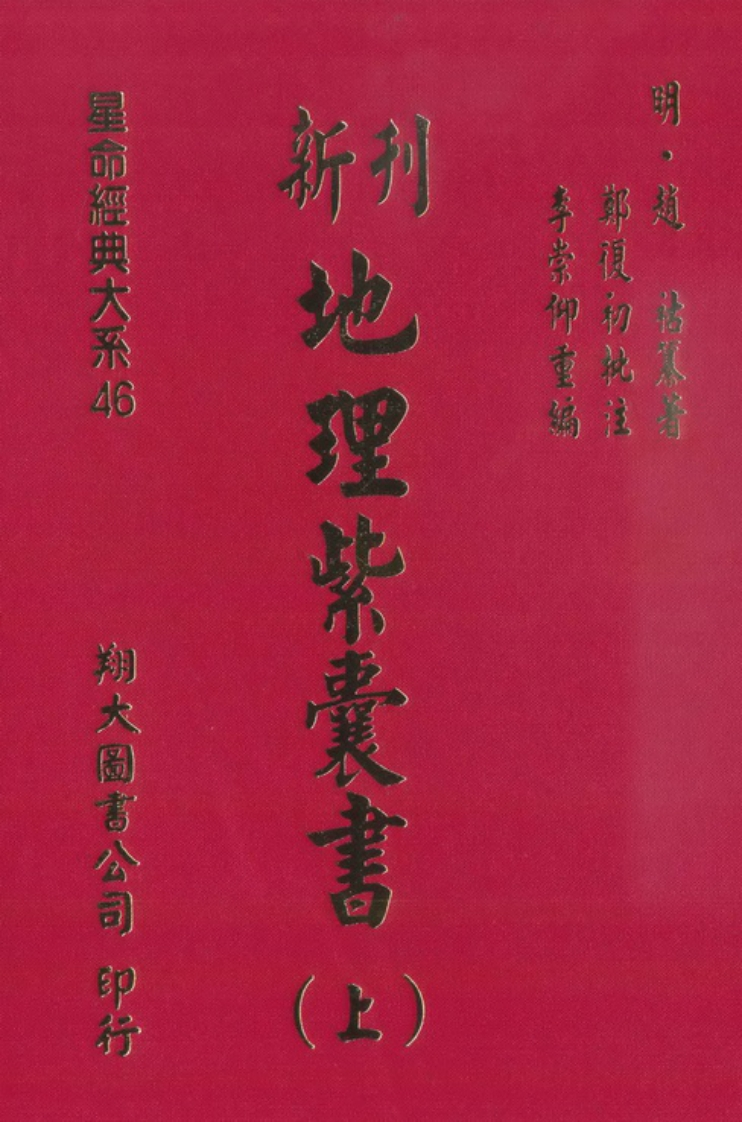 明・趙 祜纂著
鄭復初批注
李崇仰重編
新刊
地理紫囊書
(上)
星命經典大系46
翔大圖書公司 印行